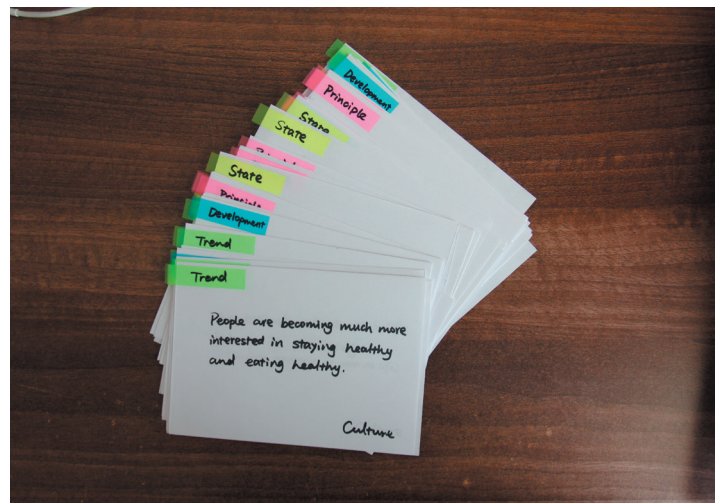 Development
Principle
State
State
State
Principle
Development
Trend
Trend
People are becoming much more
interested in staying healthy
and eating healthy.
Culture